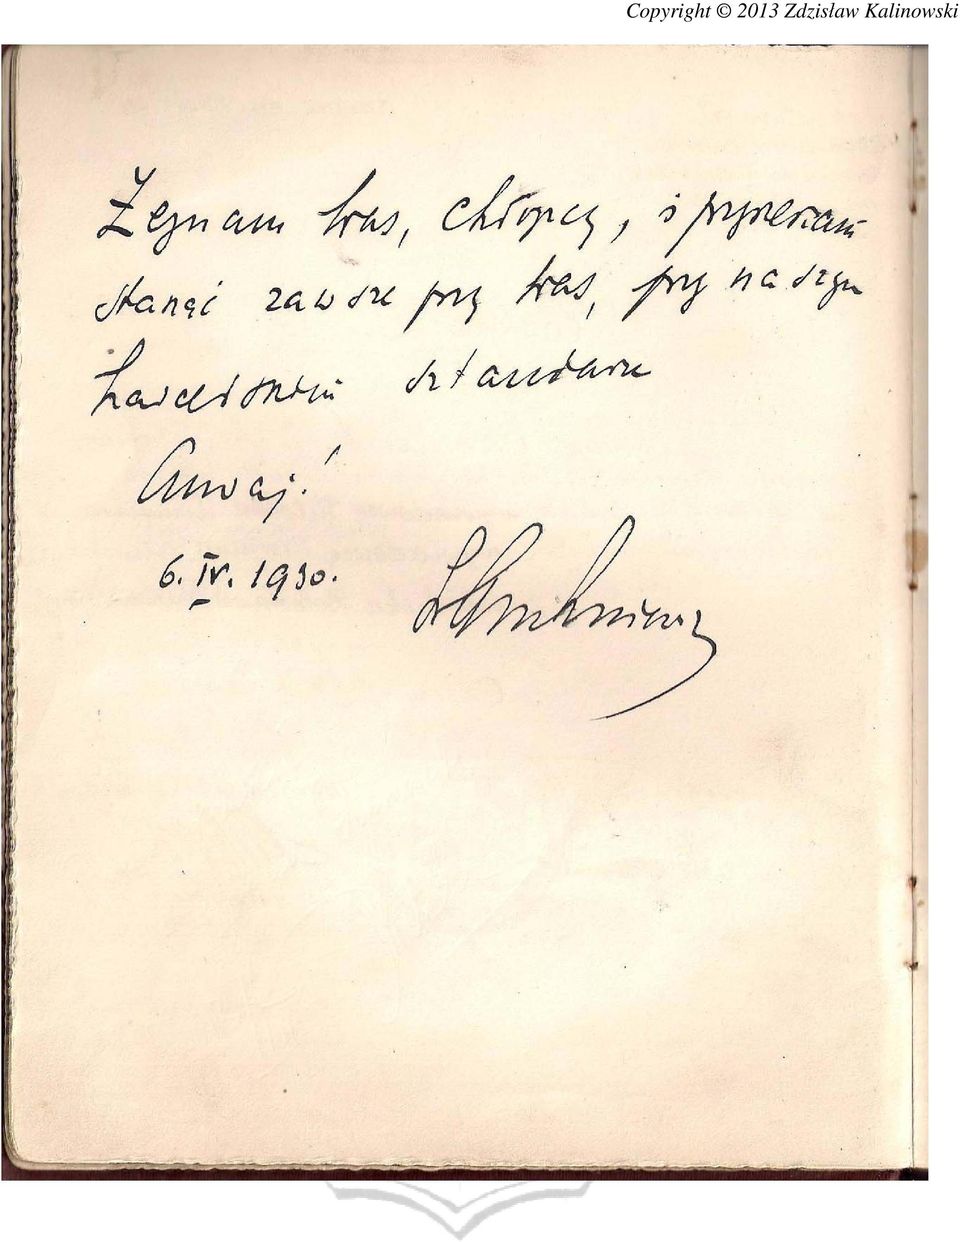 Copyright © 2013 Zdzisław Kalinowski
Żegnam Was, chłopcy, i przyrzekam
stanąć zawsze przy Was, przy naszym
harcerskim sztandarze
Czuwaj!
6. IV. 1930.